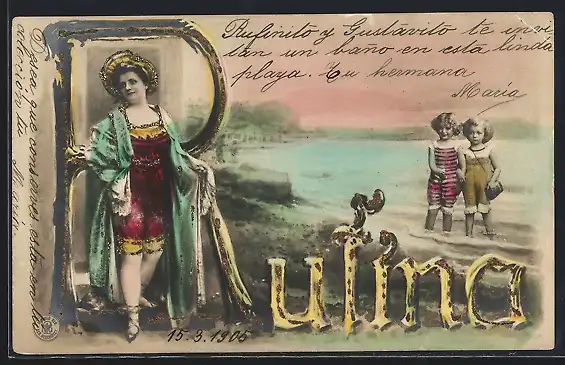 Rufinito y Gustavito te invi
tan un baño en esta linda
playa. Tu hermana
María
Desea que conserves esta en tu
colección tu
Rufina
15.3.1905